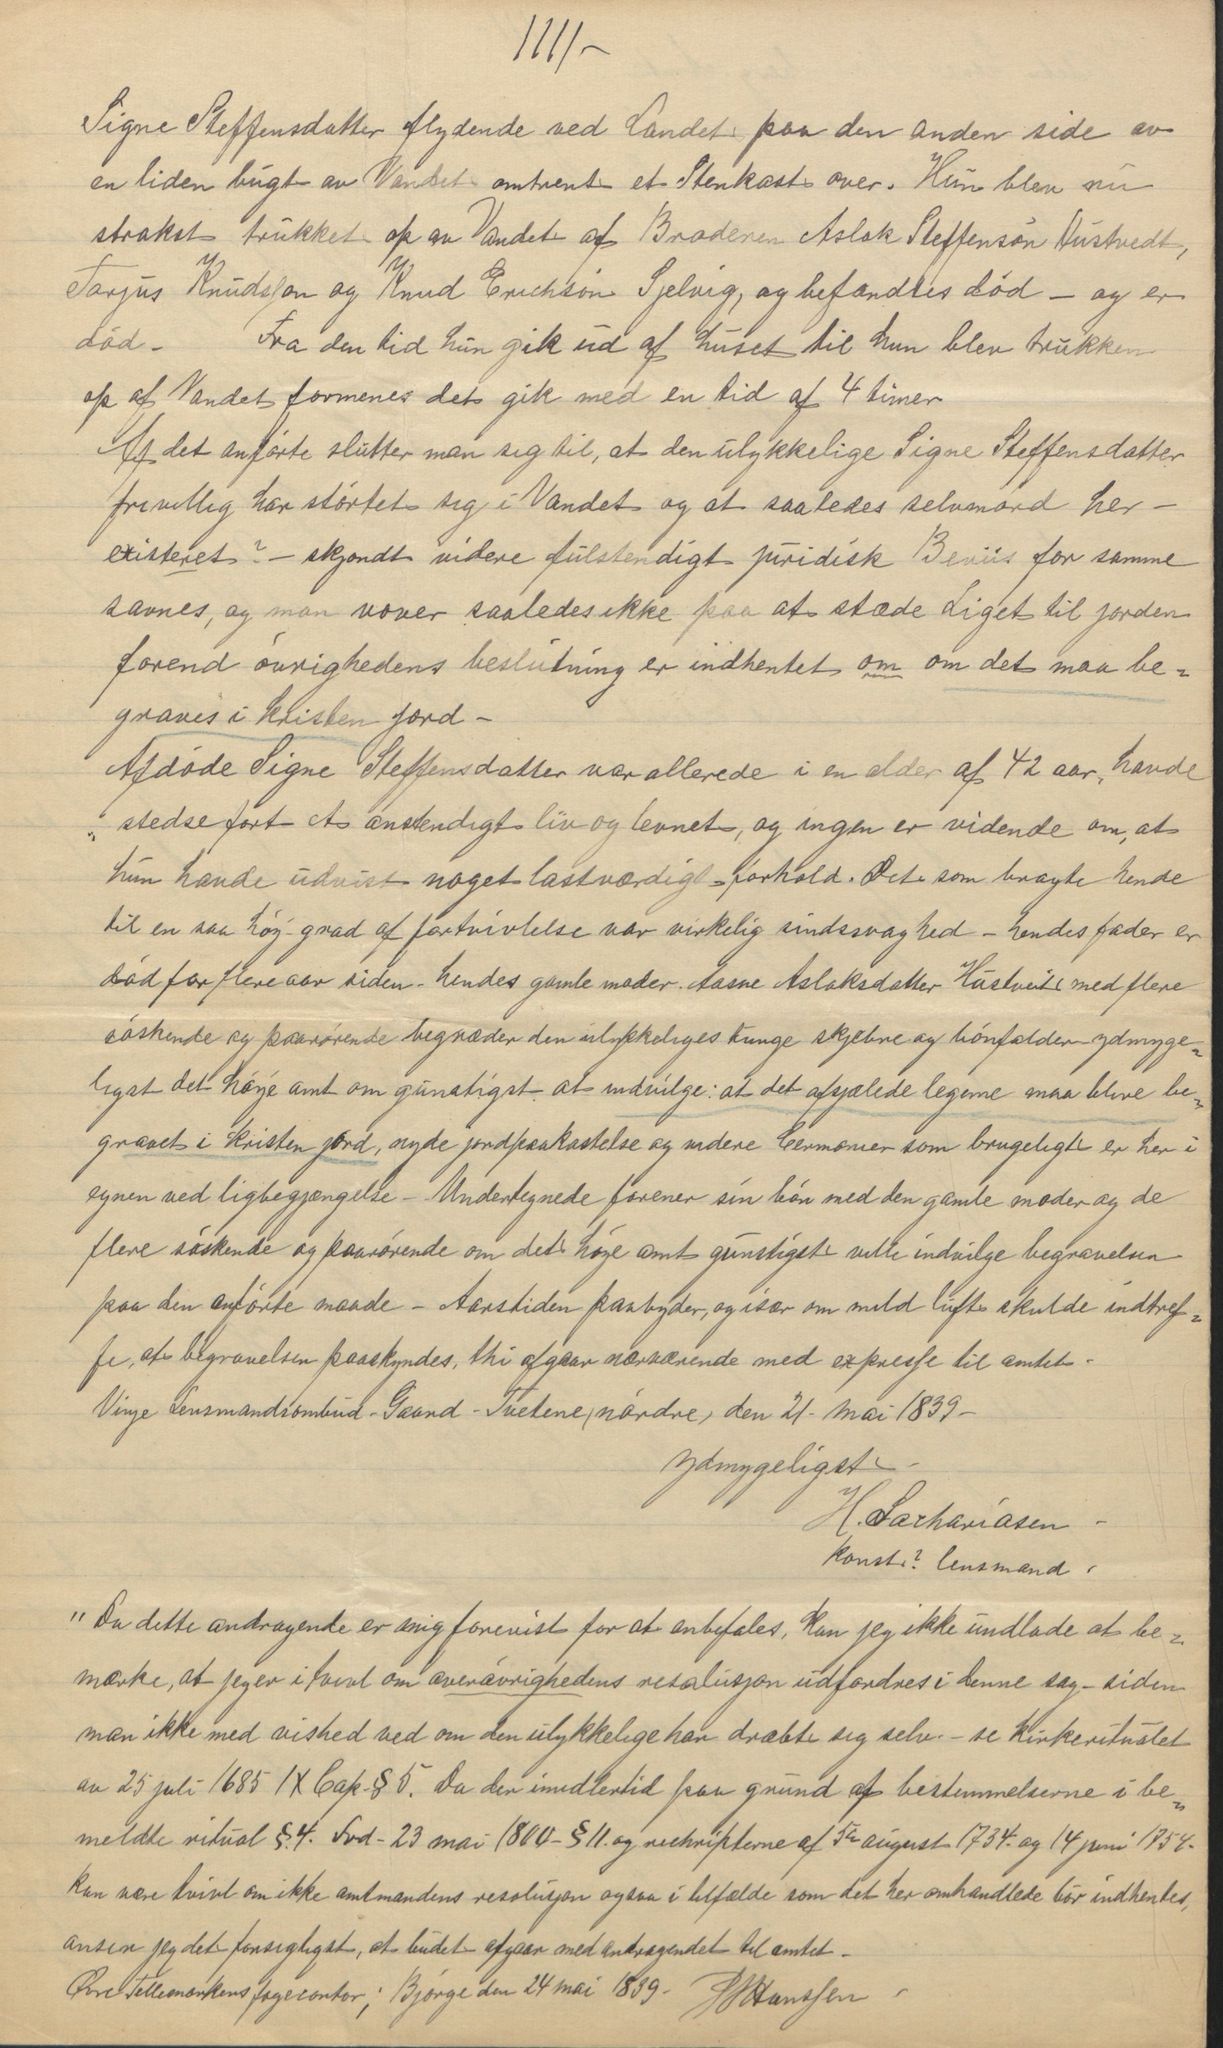 1111/-
Signe Steffensdatter flydende ved Landet paa den anden side av
en liden bugt av Vandet omtrent et Stenkast over. Hun blev nu
strakst trukket op av Vandet af Broderen Aslak Steffensön Hustvedt,
Tarjus Knudsson og Knud Erichsön Sjelvig, og befandtes död - og er
död - Fra den tid hun gik ud af huset til hun blev trukken
op af Vandet formenes det gik med en tid af 4 timer
Af det anförte slutter man sig til, at den ulykkelige Signe Steffensdatter
frivillig har störtet sig i Vandet og at saaledes selvmord her-
existeret? - skjondt videre fulstendigt juridisk Beviis for samme
savnes, og man vover saaledes ikke paa at stæde Liget til jorden
forend övrighedens beslutning er indhentet om om det maa be-
graves i kristen jord -
Afdöde Signe Steffensdatter var allerede i en alder af 42 aar, havde
stedse fört et anstendigt liv og levnet, og ingen er vidende om, at
hun havde udvist noget lastværdigt forhold. Det som bragte hende
til en saa höj grad af fortvivlelse var virkelig sindssvaghed - hendes fader er
död for flere aar siden - hendes gamle moder Aasne Aslaksdatter Hustveit med flere
söskende og paarörende begræder den ulykkeliges tunge skjebne og bönfalder ydmyge-
ligst det höye amt om gunstigst at indvilge: at det afsjælede legeme maa blive be-
gravet i kristen jord, nyde jordpaakastelse og videre Cermonier som brugeligt er her i
egnen ved ligbegjængelse - Undertegnede forener sin bön med den gamle moder og de
flere söskende og paarörende om det höye amt gunstigst ville indvilge begravelsen
paa den anförte maade - Aarstiden paabyder, og især om mild luft skulde indtref-
fe, at begravelsen paaskyndes, thi afgaar nærværende med expresse til amtet -
Vinje Lensmandsombud - Gaard - Tvetene, nördre, den 21 - mai 1839 -
Ydmygeligst -
H. Zachariasen -
Konst:? lensmand
" Da dette andragende er mig forevist for at anbefales, kan jeg ikke undlade at be-
mærke, at jeg er i tvivl om overövrighedens resolusjon udfordres i denne sag - siden
man ikke med vished ved om den ulykkelige har dræbt sig selv - se kirkeritualet
av 25 juli 1685 IX Cap. § 5. Da der imidlertid paa grund af bestemmelserne i be-
meldte ritual § 4. Frd - 23 mai 1800 - § 11. og rechripterne af 5te august 1734 og 14 juni 1754 -
kan være tvivl om ikke amtmandens resolusjon ogsaa i tilfælde som det her omhandlede bör indhentes,
anser jeg det forsigtigst, at budet afgaar med andragendet til amtet -
Övre Tellemarkens fogecontor; Björge den 24 mai 1839 - Hanssen